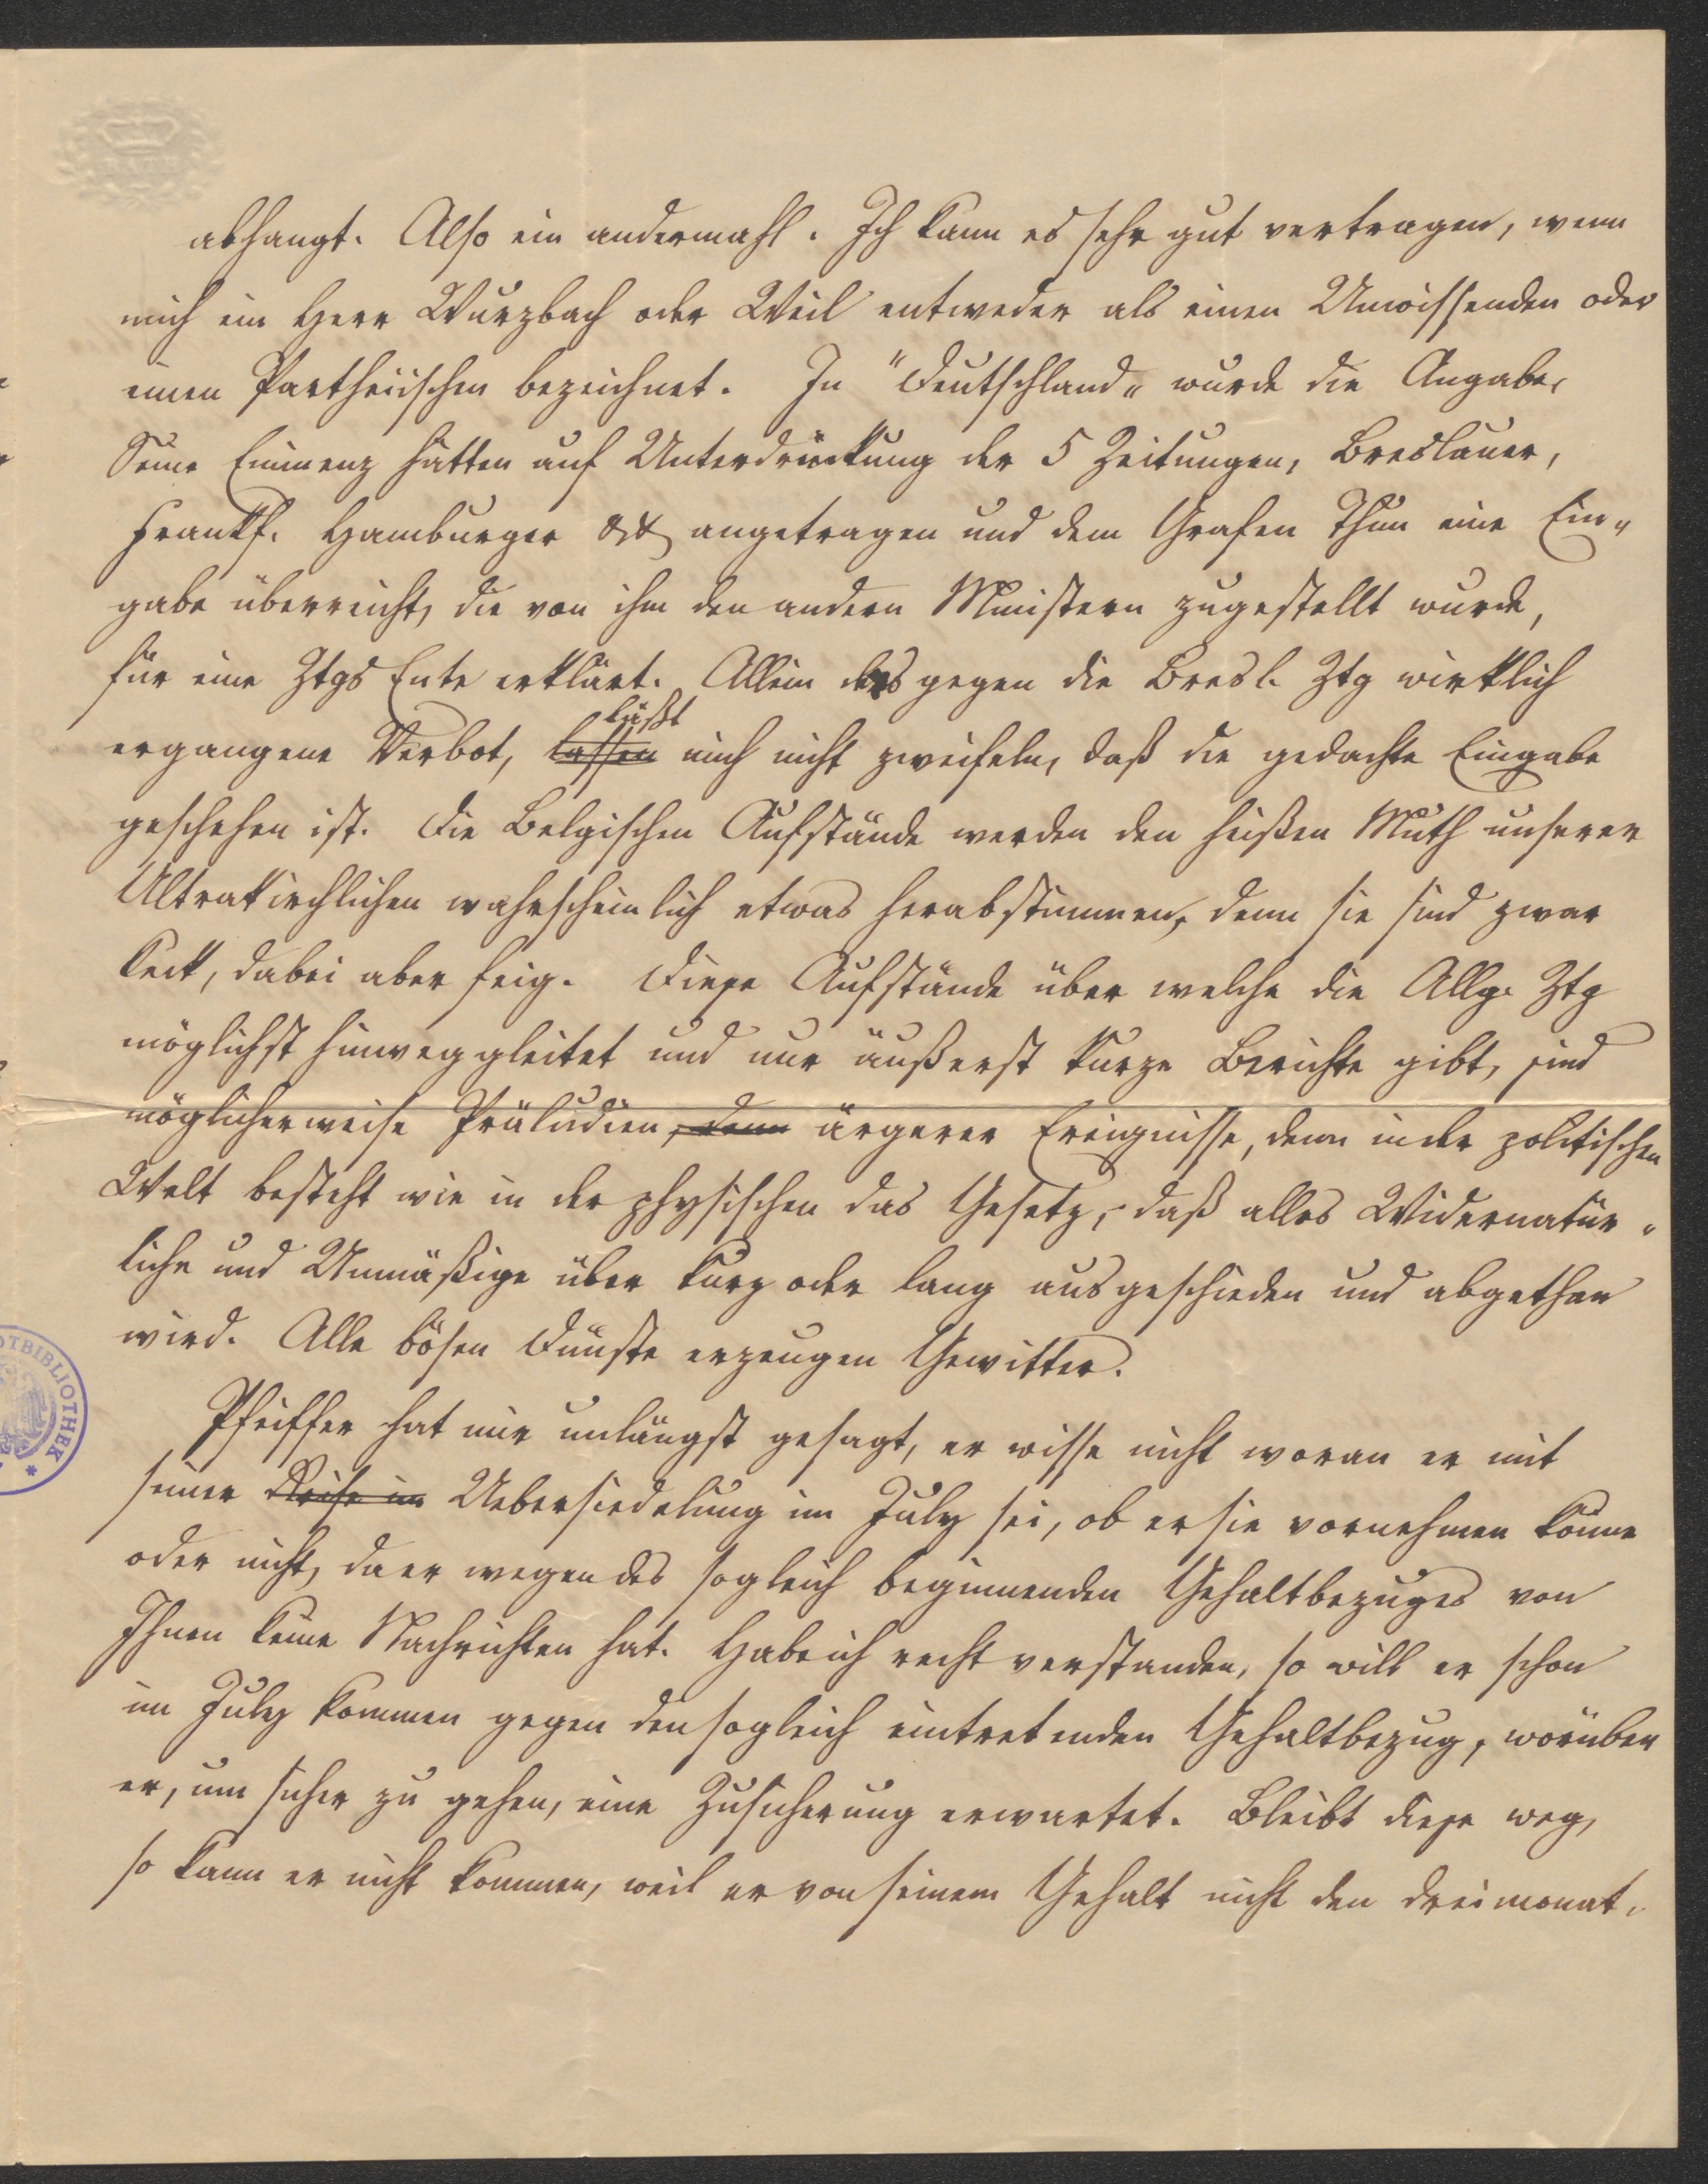 abhangt. Also ein andermahl. Ich kann es sehr gut vertragen, wenn
mich ein Herr Wurzbach oder Weil entweder als einen Unwissenden oder
einen Partheiischen bezeichnet. In "Deutschland" wurde die Angabe,
Seine Eminenz hätten auf Unterdrückung der 5 Zeitungen, Breslauer,
Frankf. Hamburger &&. angetragen und dem Grafen Thun eine Ein-
gabe überreicht, die von ihm den andern Ministern zugestellt wurde,
für eine Ztgs Ente erklärt. Allein das gegen die Bresl. Ztg wirklich
läßt
ergangene Verbot, lassen mich nicht zweifeln, daß die gedachte Eingabe
geschehen ist. Die Belgischen Aufstände werden den heißen Muth unserer
Ultrakirchlichen wahrscheinlich etwas herabstimmen, denn sie sind zwar
keck, dabei aber feig. Diese Aufstände über welche die Allg. Ztg
möglichst hinweggleitet und nur äußerst kurze Berichte gibt, sind
möglicherweise Präludien, denn ärgerer Ereignisse, denn in der politischen
Welt besteht wie in der physischen das Gesetz, daß alles Widernatür-
liche und Unmäßige über kurz oder lang ausgeschieden und abgethan
wird. Alle bösen Dünste erzeugen Gewitter.
Pfeiffer hat mir unlängst gesagt, er wisse nicht woran er mit
seiner Reise im Uebersiedelung im July sei, ob er sie vornehmen könne
oder nicht, da er wegen des sogleich beginnenden Gehaltbezuges von
Ihnen keine Nachrichten hat. Habe ich recht verstanden, so will er schon
im July kommen gegen den sogleich eintretenden Gehaltbezug, worüber
er, um sicher zu gehen, eine Zusicherung erwartet. Bleibt diese weg,
so kann er nicht kommen, weil er von seinem Gehalt nicht den dreimonat-
OTBIBLIOTHEK